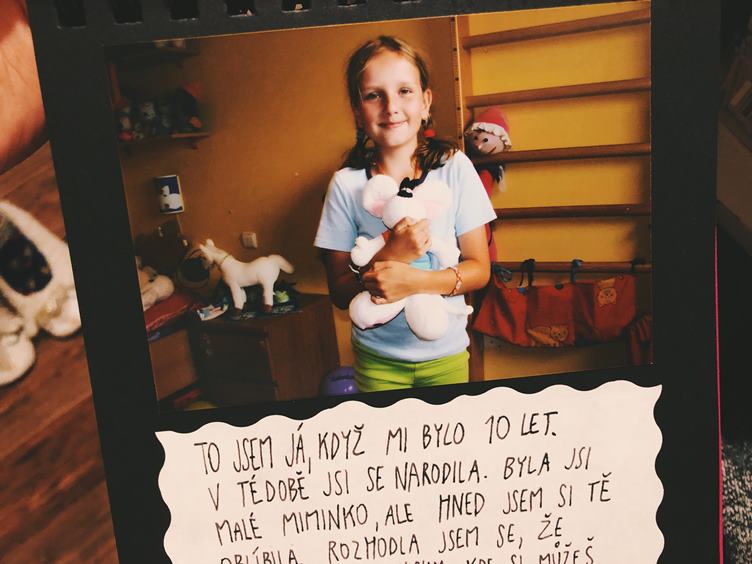 TO JSEM JÁ, KDYŽ MI BYLO 10 LET.
V TÉDOBĚ JSI SE NARODILA. BYLA JSI
MALÉ MIMINKO, ALE HNED JSEM SI TĚ
OBLÍBILA. ROZHODLA JSEM SE, ŽE
KDE SI MŮŽEŠ